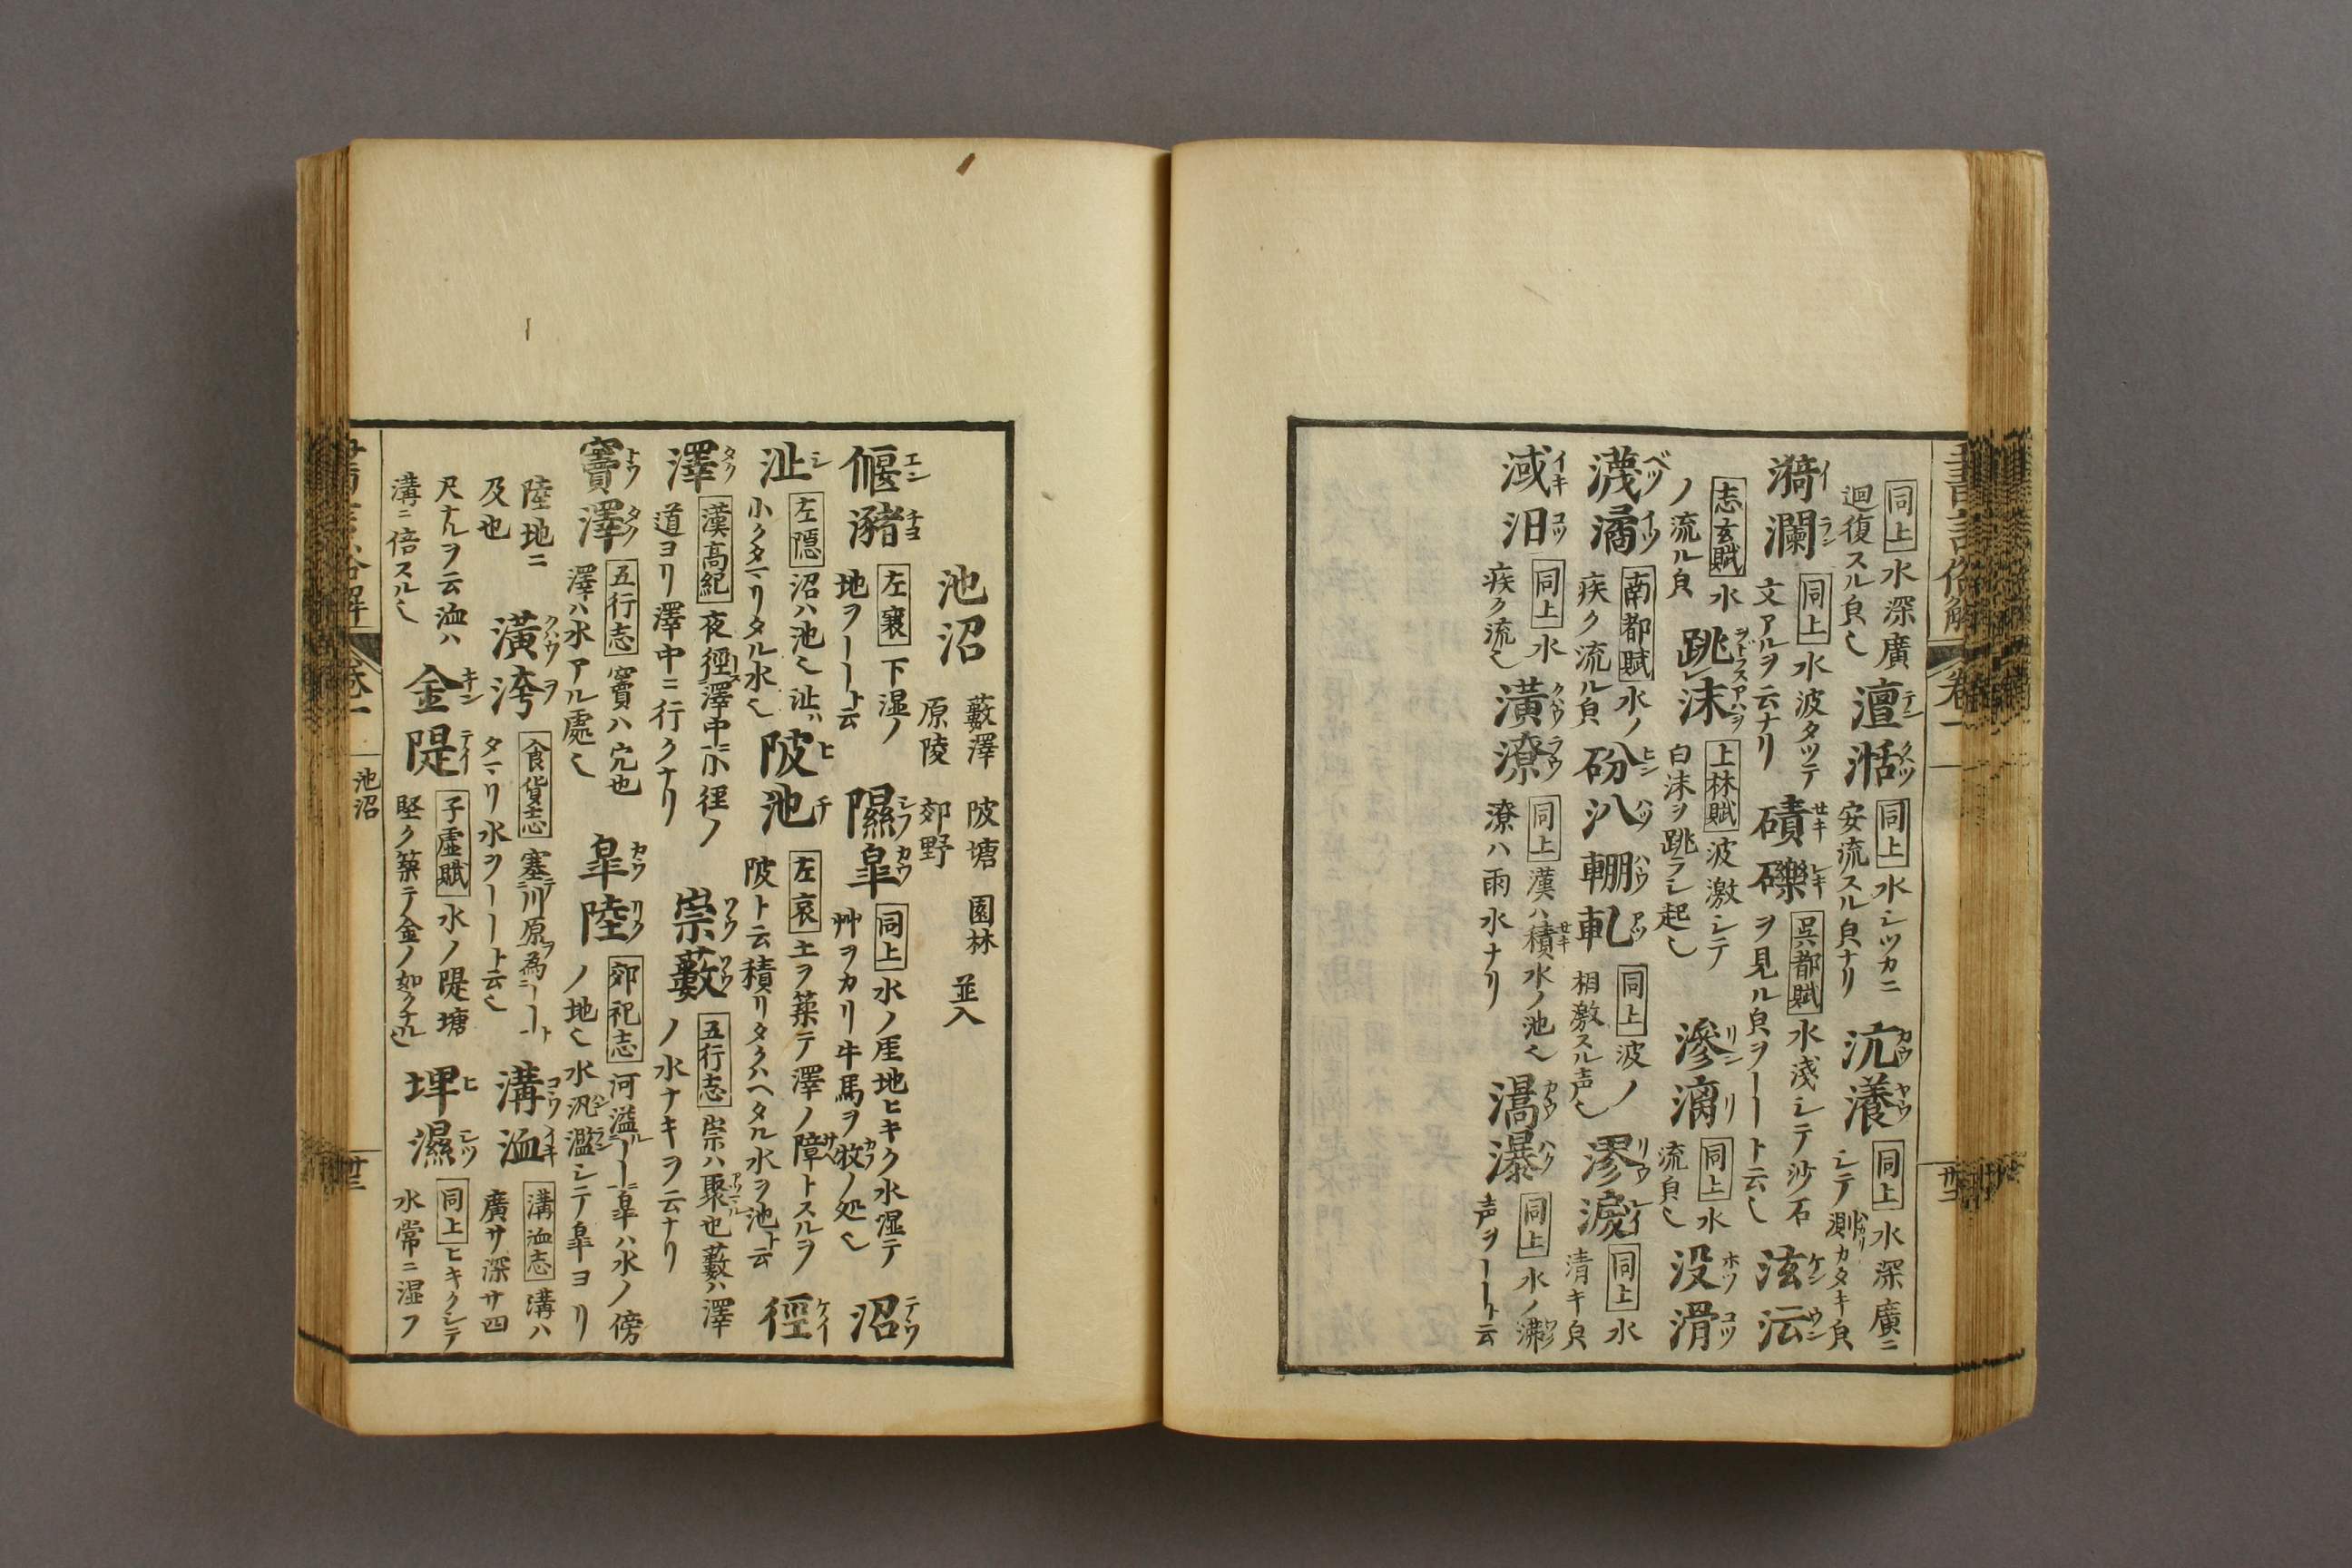 同上 水深廣
迴復スル皃〻
澶湉
同上 水シツカニ
安流スル皃ナリ
沆瀁
同上 水深廣ニ
シテ測カタキ皃
漪瀾
同上 水波タツテ
文アルヲ云ナリ
磧礫
呉都賦 水淺シテ沙石
ヲ見ル皃ヲ——ト云〻
泫沄
志玄賦 水
ノ流ル皃
跳沫
上林賦 波激シテ
白沫ヲ跳ラシ起〻
滲漓
同上 水
流皃〻
没滑
濊潏
南都賦 水ノ
疾ク流ル皃
砏汃輣軋
同上 波ノ
相激スル声〻
漻淚
同上 水
清キ皃
淢汩
同上 水
疾ク流〻
潢潦
同上 漢ハ積水ノ池〻
潦ハ雨水ナリ
滈瀑
同上 水ノ沸
声ヲ——ト云
卷一
池沼
藪澤 陂塘 園林
原陵 郊野
並入
偃瀦
左襄 下湿ノ
地ヲ——ト云
隰皐
同上 水ノ厓地ヒキク水湿テ
艸ヲカリ牛馬ヲ牧ノ処〻
沼
沚
左隠 沼ハ池〻沚ハ
小クタマリタル水〻
陂池
左哀 土ヲ築テ澤ノ障トスルヲ
陂ト云積リタクハヘタル水ヲ池ト云
徑
澤
漢高紀 夜徑澤中ニ小徑ノ
道ヨリ澤中ニ行クナリ
崇藪
五行志 崇ハ聚也藪ハ澤
ノ水ナキヲ云ナリ
竇澤
五行志 竇ハ穴也
澤ハ水アル處〻
皐陸
郊祀志 河溢——皐ハ水ノ傍
ノ地〻水汎濫シテ皐ヨリ
陸地ニ
及也
潢洿
食貨志 塞川原為——
タマリ水ヲ——ト云〻
溝洫
溝洫志 溝ハ
廣サ深サ四
尺ナルヲ云洫ハ
溝ニ倍スル〻
金隄
子虚賦 水ノ隄塘
堅ク築テ金ノ如クナル〻
埤濕
同上 ヒキクシテ
水常ニ湿フ
池沼